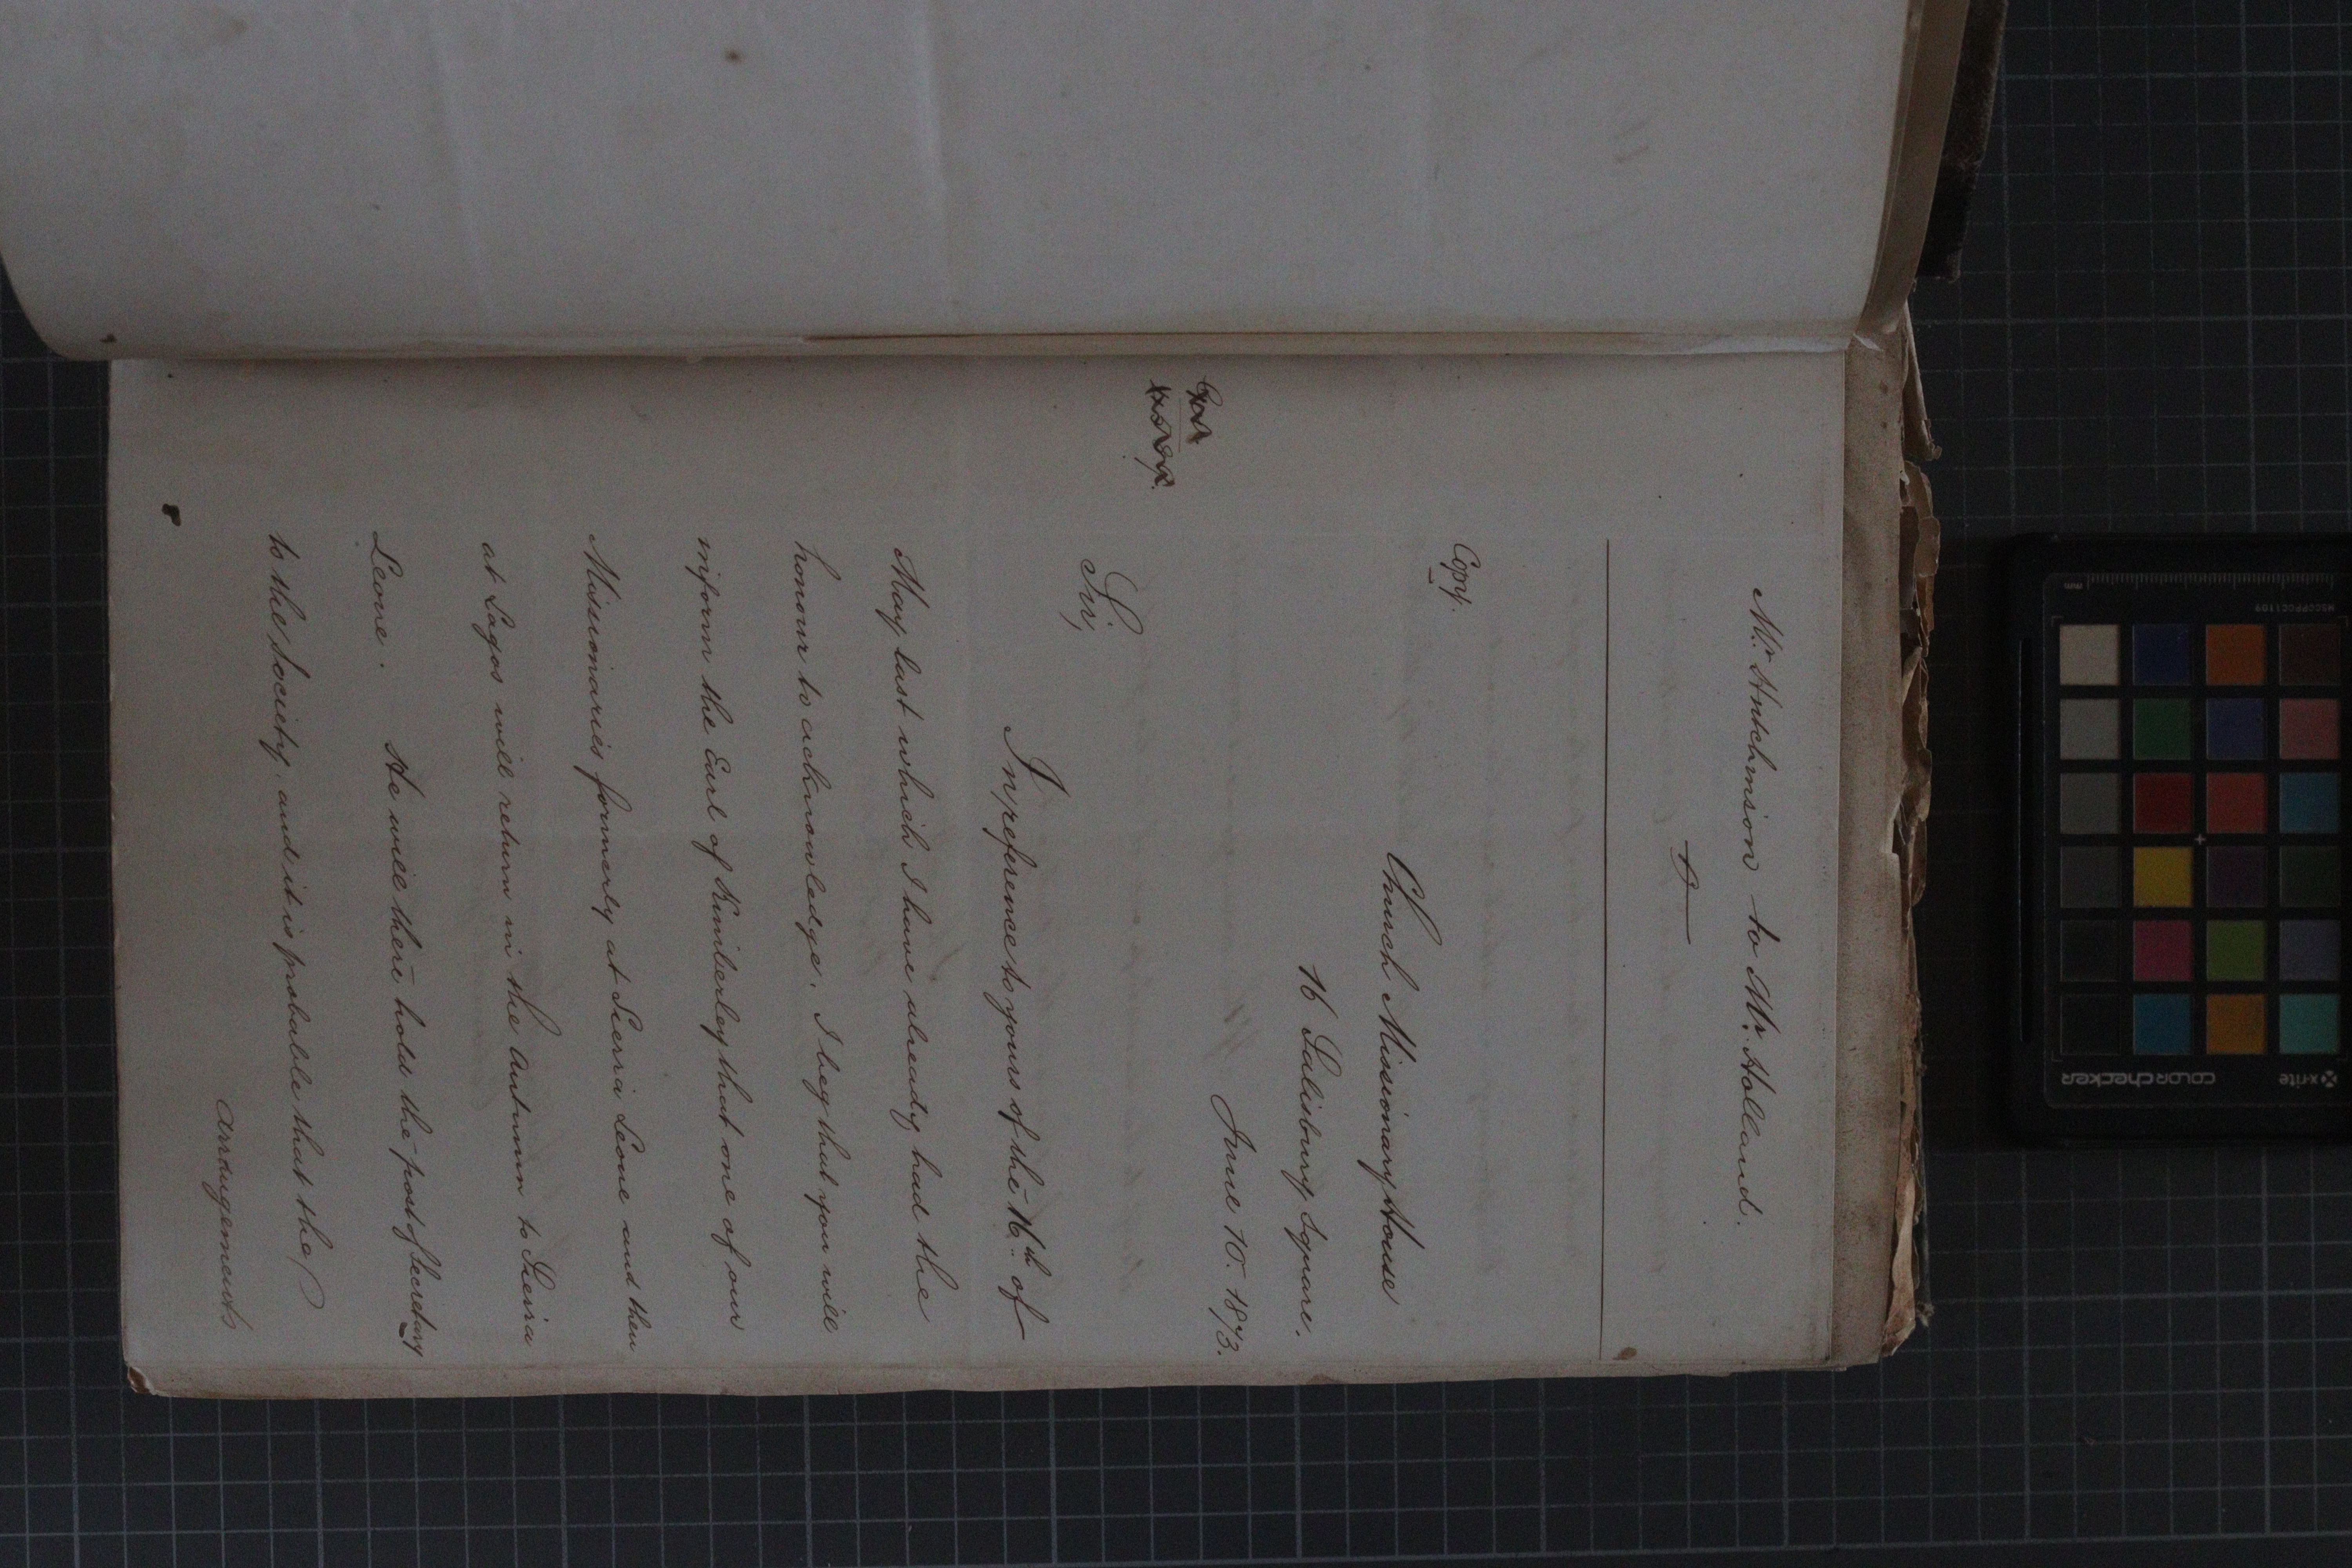 Mr. Hutchinson to Mr. Holland.
Copy.
Church Missionary House
16 Salisbury Square.
June 10. 1873.
Sir,
In reference to yours of the 16th of
May last which I have already had the
honour to acknowledge. I beg that you will
inform the Earl of Kimberley that one of our
Missionaries formerly at Sierra Leone and then
at Lagos will return in the Autumn to Sierra
Leone. He will there hold the post of Secretary
to the Society, and it is probable that the
arrangements
x-rite
colorchecker
MSCCPPCC1109
mm